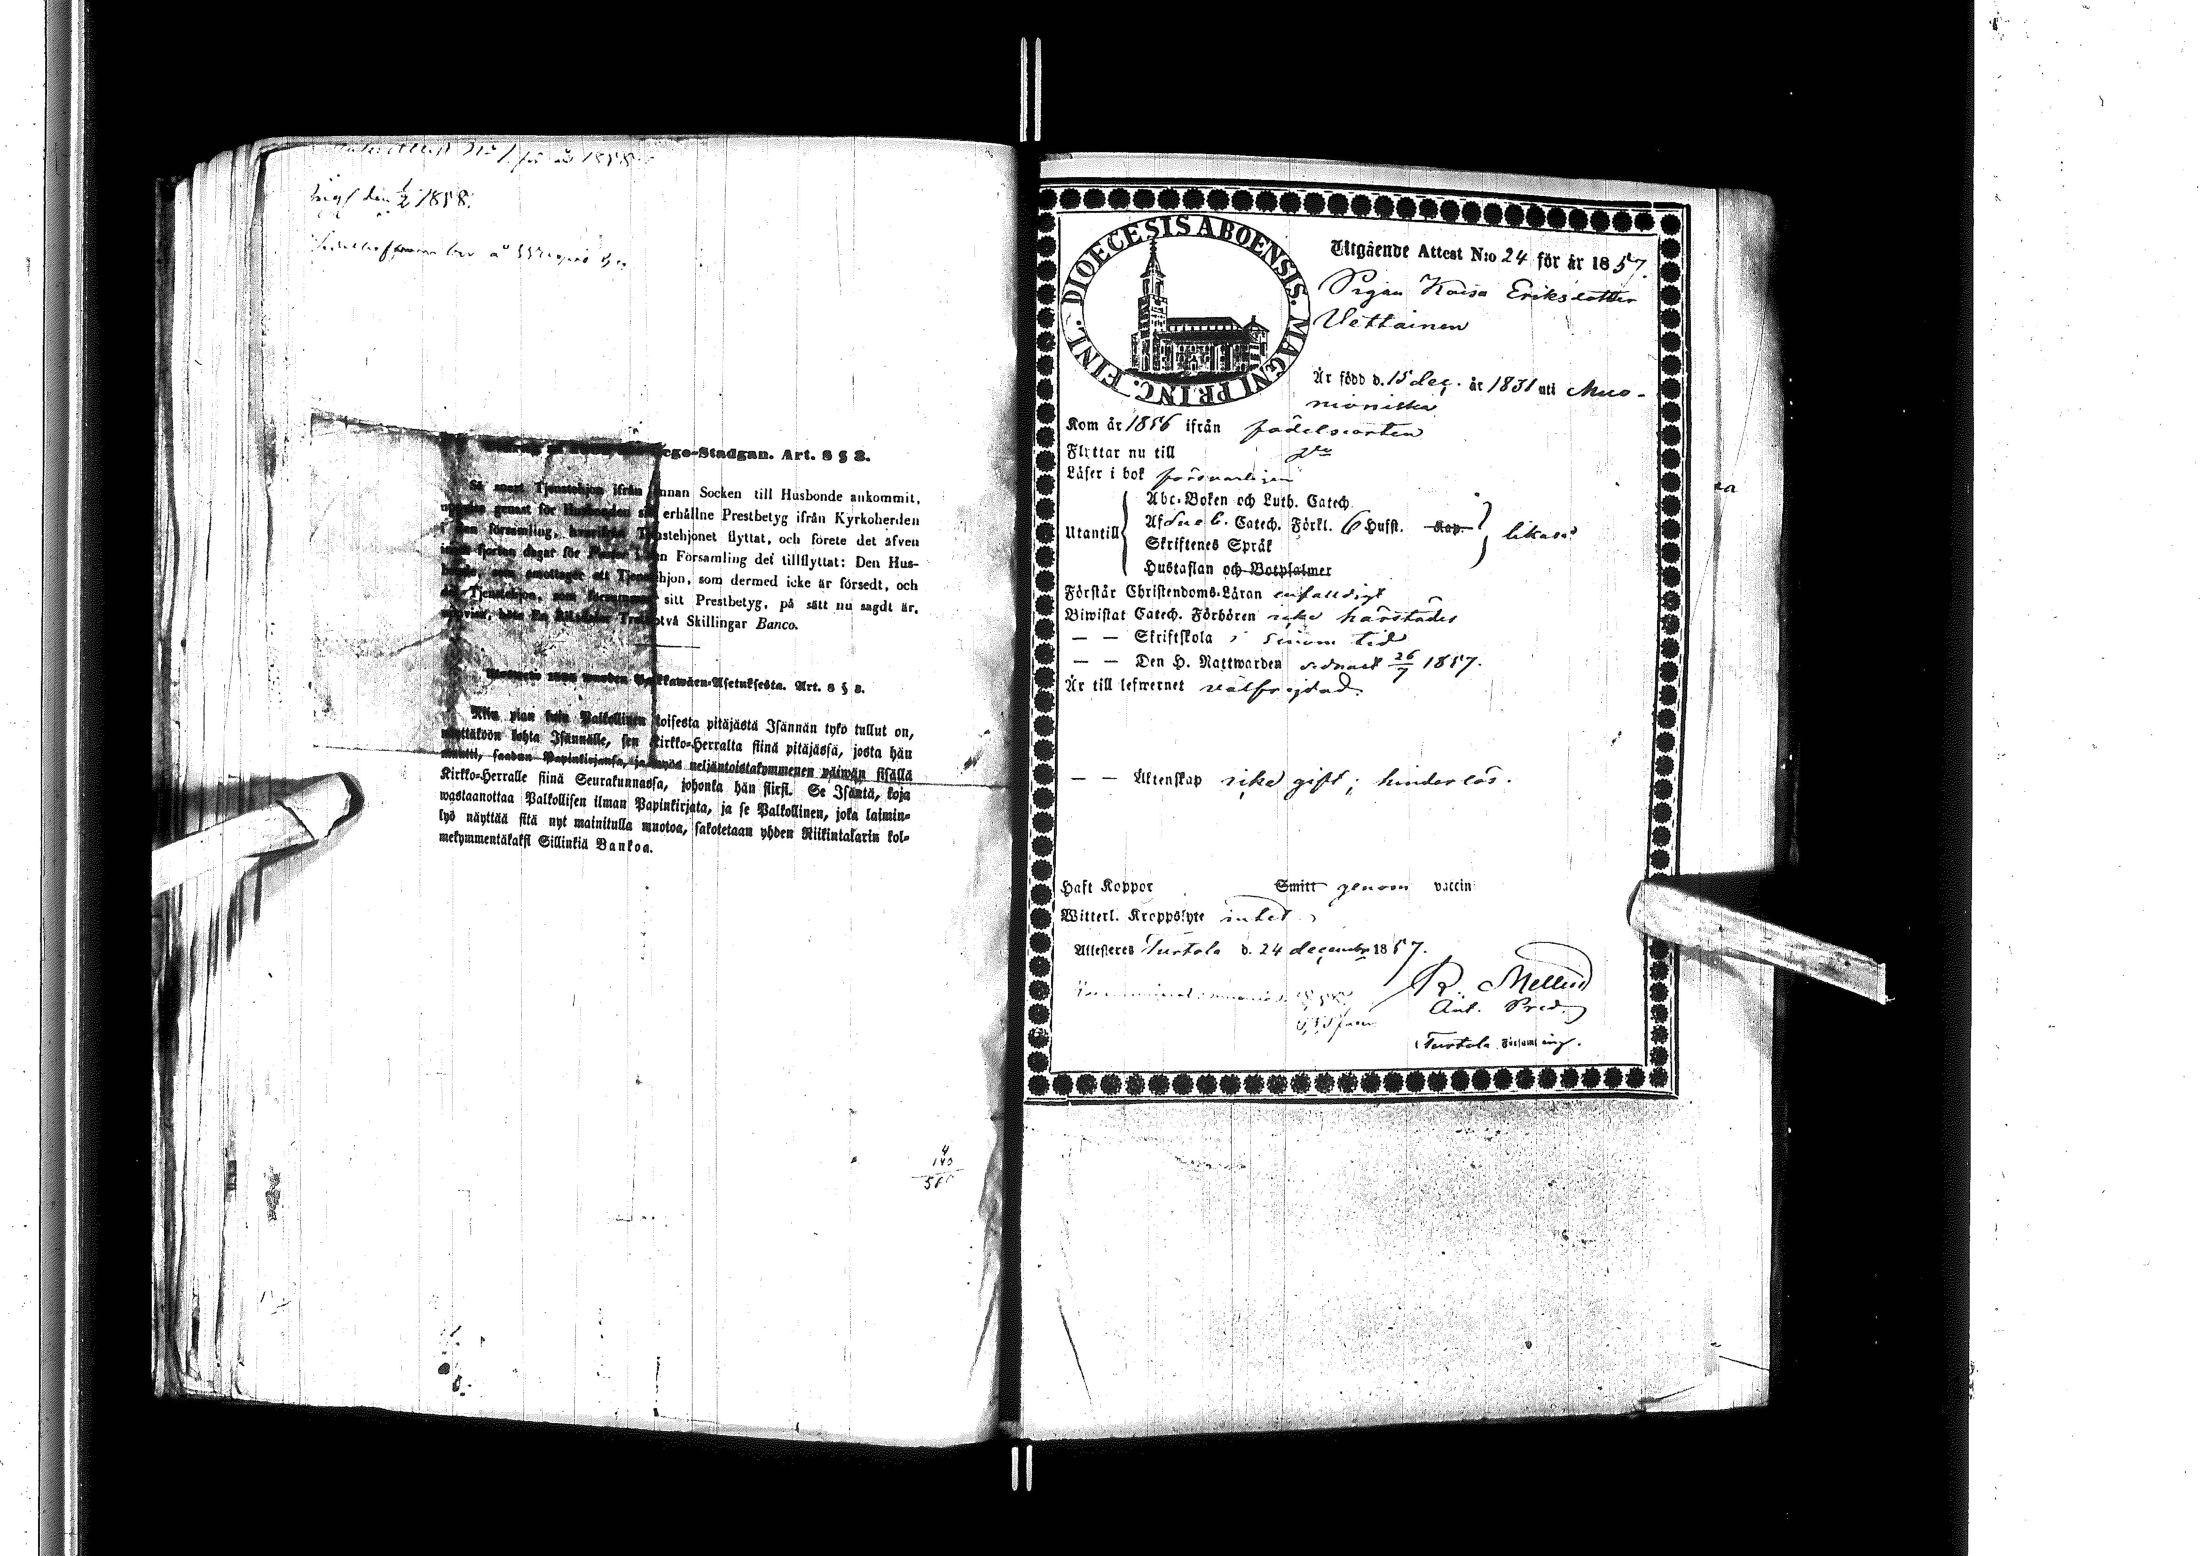 för år 1858
den 1/2 1858.
rgo-Stadgan. Art. 8 § 2.
Så snart Tjenstehjon ifrån annan Socken till Husbonde ankommit,
genast för Husbonden sitt erhållne Prestbetyg ifrån Kyrkoherden
i den församling, hvarifrån Tjenstehjonet flyttat, och förete det äfven
inom fjorton dagar för Församling det tillflyttat: Den Hus-
bonde, som emottager ett Tjenstehjon, som dermed icke är försedt, och
det Tjenstehjon, som sitt Prestbetyg, på sätt nu sagdt är,
böte En Riksdaler Trettiotvå Skillingar Banco.
wuoden Palkkawäen-Asetuksesta. Art. 8 § 2.
Niin pian kuin Palkollinen toisesta pitäjästä Isännän tykö tullut on,
näyttäköön kohta Isännälle, sen Kirkko-Herralta siinä pitäjässä, josta hän
muutti, saadun Papinkirjansa, ja myös neljäntoistakymmenen päiwän sisällä
Kirkko-Herralle siinä Seurakunnassa, johonka hän siirsi. Se Isäntä, koja
wastaanottaa Palkollisen ilman Papinkirjata, ja se Palkollinen, joka laimin-
lyö näyttää sitä nyt mainitulla muotoa, sakotetaan yhden Riikintalarin kol-
mekymmentäkaksi Sillinkiä Bankoa.
4
140
DIOECESIS ABOENSIS. MAGNI PRINC. FINL.
Utgående Attest N:o 24 för år 1857.
Pigan Kaisa Eriksdotter
Vettainen
Är född d. 15 dec. år 1831 uti Muo-
nioniska
Kom år 1856 ifrån födelseorten
Flyttar nu till
Läser i bok försvarligen
Abc-Boken och Luth. Catech
Utantill Af Sueb. Catech. Förkl. 6 Hufst. Kap. likaså
Skriftenes Språk
Hustaflan och Botpsalmer
Förstår Christendoms-Läran enfaldigt
Biwistat Catech. Förhören icke härstädes
— — Skriftskola i sinom tid
— — Den H. Nattwarden sednast 26/7 1857.
Är till lefwernet välfrejdad
— — Äktenskap icke gift; hinderlös.
Haft Koppor Smitt genom vaccin
Witterl. Kroppslyte intet
Attesteres Turtola d. 24 decembr 1857.
R. Mellin
Pred.
i Turtola Församling.